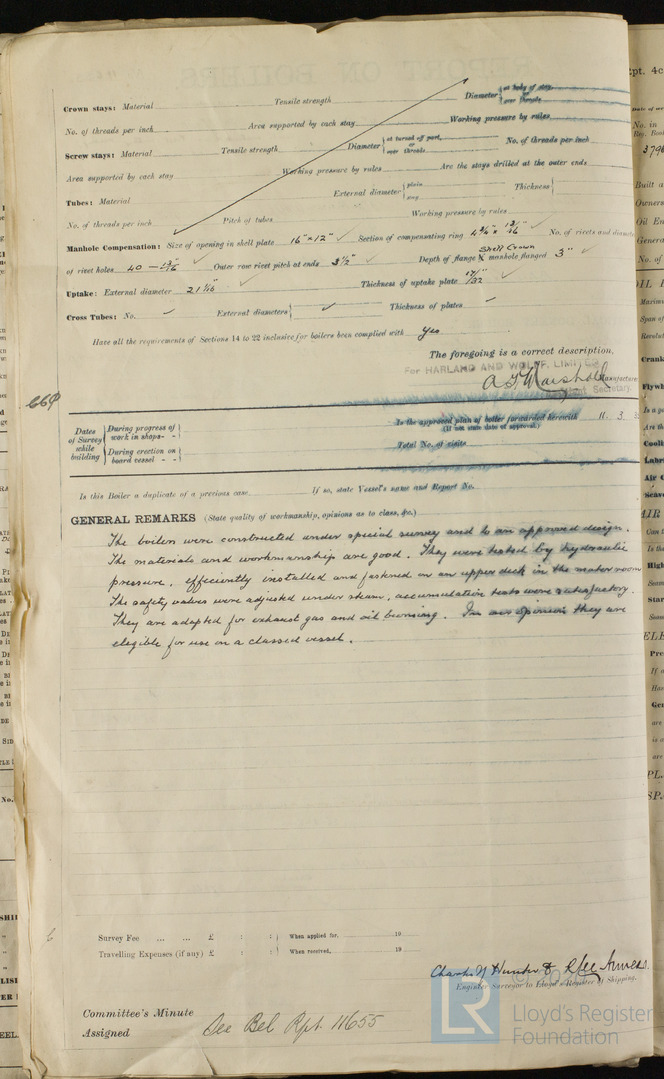 Crown stays: Material Tensile strength Diameter { at body of stay, or over threads
No. of threads per inch Area supported by each stay Working pressure by rules
Screw stays: Material Tensile strength Diameter { at turned off part, or over threads No. of threads per inch
Area supported by each stay Working pressure by rules Are the stays drilled at the outer ends
Tubes: Material External diameter { plain stay Thickness {
No. of threads per inch Pitch of tubes Working pressure by rules
Manhole Compensation: Size of opening in shell plate 16" × 12" ✓ Section of compensating ring No. of rivets and diameter
of rivet holes 40 — 13/16" ✓ Outer row rivet pitch at ends 3½" ✓ Depth of flange if manhole flanged Shell Crown 3" ✓
Uptake: External diameter 21 1/16" ✓ Thickness of uptake plate 17/32" ✓
Cross Tubes: No. External diameters { Thickness of plates
Have all the requirements of Sections 14 to 22 inclusive for boilers been complied with Yes
The foregoing is a correct description,
For HARLAND AND WOLFF, LIMITED
A.F. Marshall Manufacturer
Secretary.
Dates of Survey while building { During progress of work in shops - - } Is the approved plan of boiler forwarded herewith 11. 3.
(If not state date of approval.)
{ During erection on board vessel - - - } Total No. of visits
Is this Boiler a duplicate of a previous case If so, state Vessel's name and Report No.
GENERAL REMARKS (State quality of workmanship, opinions as to class, &c.)
The boilers were constructed under special survey and to an approved design.
The materials and workmanship are good. They were tested by hydraulic
pressure, efficiently installed and fastened on an upper deck in the motor room
The safety valves were adjusted under steam, accumulation tests were satisfactory.
They are adapted for exhaust gas and oil burning. In our opinion they are
eligible for use in a classed vessel.
Survey Fee ... ... £ : : } When applied for, 19
Travelling Expenses (if any) £ : : } When received, 19
Charles N Hunter &
Engineer Surveyor to Lloyd's Register of Shipping.
Committee's Minute
Assigned See Bel Rpt. 11655
© 2020
LR Lloyd's Register
Foundation